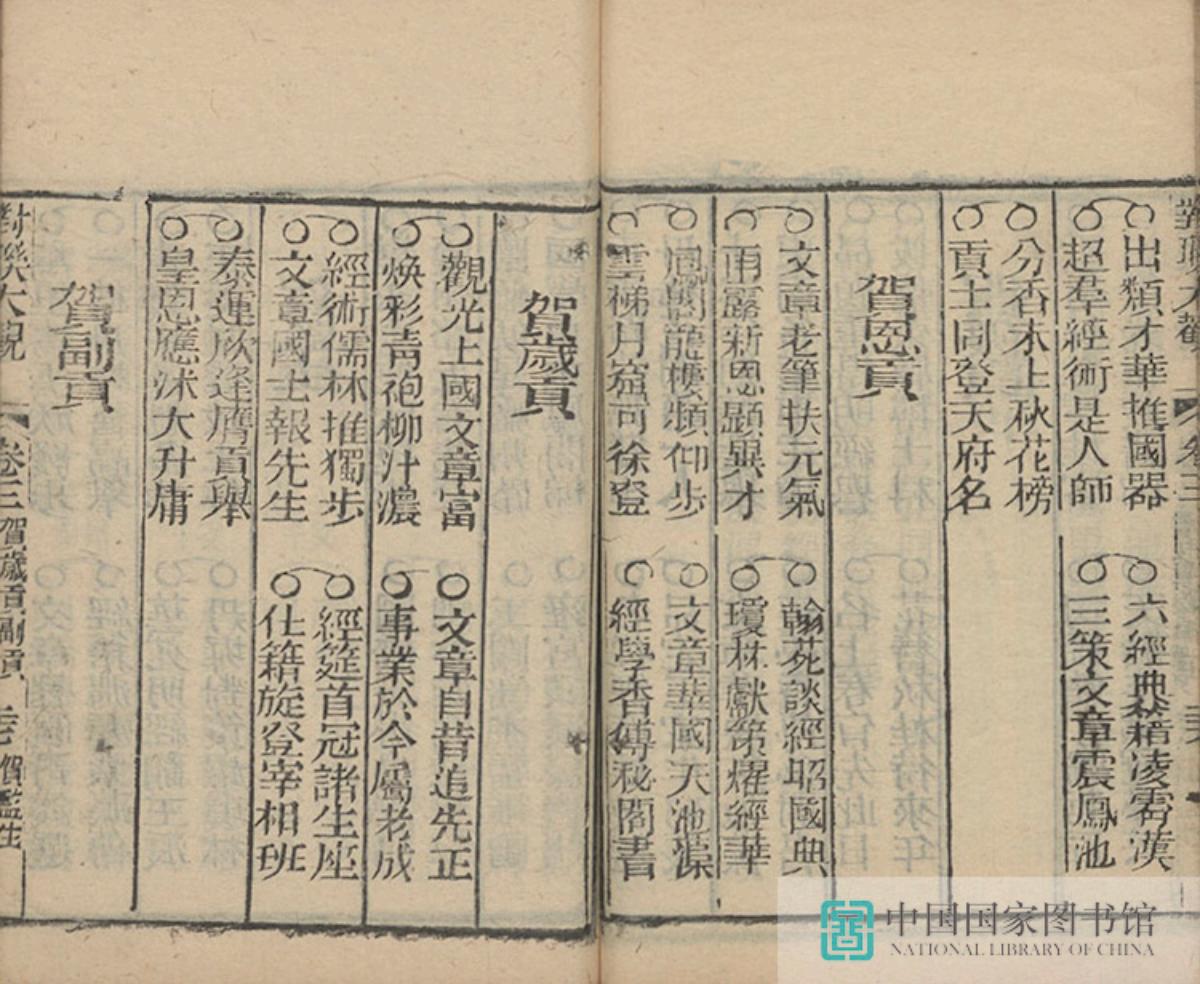 對聯大觀 卷三
出類才華推國器
超羣經術是人師
六經典籍凌霄漢
三策文章震鳳池
分香木上秋花榜
貢士同登天府名
賀恩貢
文章老筆扶元氣
雨露新恩顯異才
翰苑談經昭國典
瓊林獻策燿經華
鳳閣龍樓頻仰步
雲梯月窟可徐登
文章華國天池藻
經學香傳秘閣書
賀歲貢
觀光上國文章富
煥彩靑袍柳汁濃
文章自昔追先正
事業於今屬老成
經術儒林推獨步
文章國士報先生
經筵首冠諸生座
仕籍旋登宰相班
泰運欣逢膺貢舉
皇恩應沐大升庸
賀副貢
對聯大觀 卷三 賀歲貢副貢 賀監生
中国国家图书馆
NATIONAL LIBRARY OF CHINA